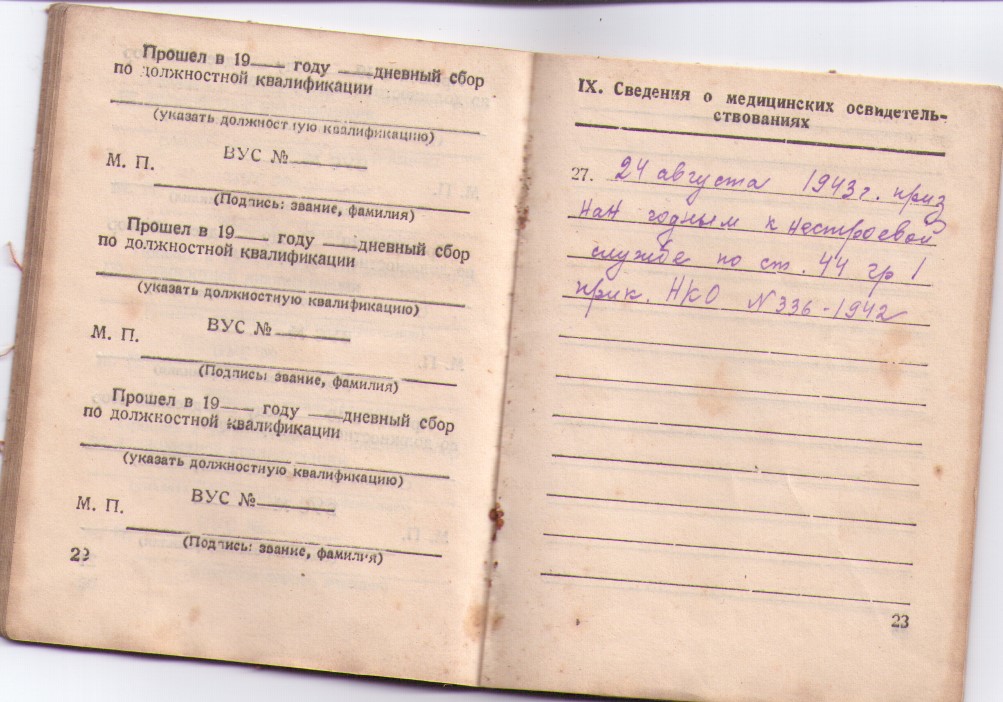 Прошел в 19 году дневный сбор
по должностной квалификации
(указать должностную квалификацию)
М. П. ВУС №
(Подпись: звание, фамилия)
Прошел в 19 году дневный сбор
по должностной квалификации
(указать должностную квалификацию)
М. П. ВУС №
(Подпись: звание, фамилия)
Прошел в 19 году дневный сбор
по должностной квалификации
(указать должностную квалификацию)
М. П. ВУС №
(Подпись: звание, фамилия)
IX. Сведения о медицинских освидетель-
ствованиях
27. 24 августа 1943г. приз
нан годным к нестроевой
службе по ст. 44 гр I
прик. НКО N 336-1942
23